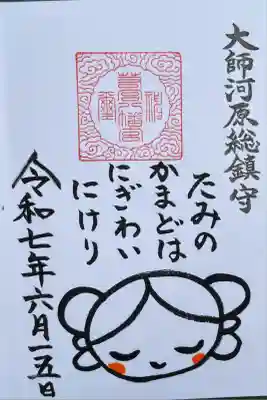 大師河原総鎮守
たみの
かまどは
にぎわい
にけり
令和七年六月一五日